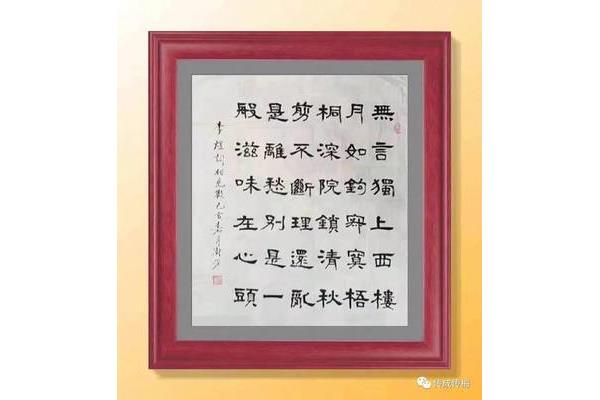 無言獨上西樓
月如鉤寂寞梧
桐深院鎖清秋
剪不斷理還亂
是離愁別是一
般滋味在心頭
李煜詞相見歡己亥